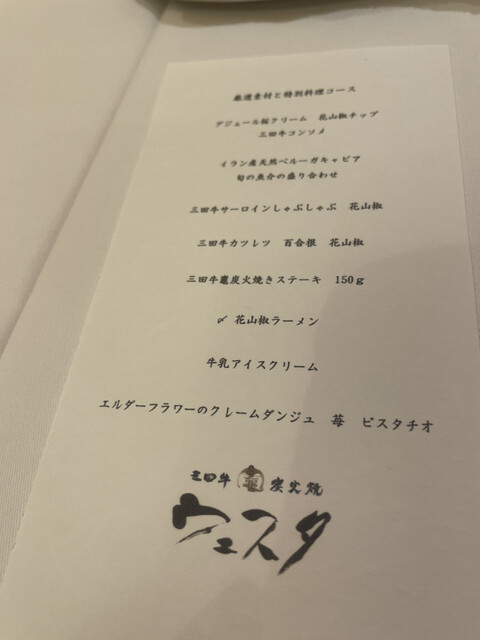 厳選素材と特別料理コース
デジュール桜クリーム　花山椒チップ
三田牛コンソメ
イラン産天然ベルーガキャビア
旬の魚介の盛り合わせ
三田牛サーロインしゃぶしゃぶ　花山椒
三田牛カツレツ　百合根　花山椒
三田牛竈炭火焼きステーキ　150g
〆 花山椒ラーメン
牛乳アイスクリーム
エルダーフラワーのクレームダンジュ　苺　ピスタチオ
三田牛 炭火焼
ウェスタ